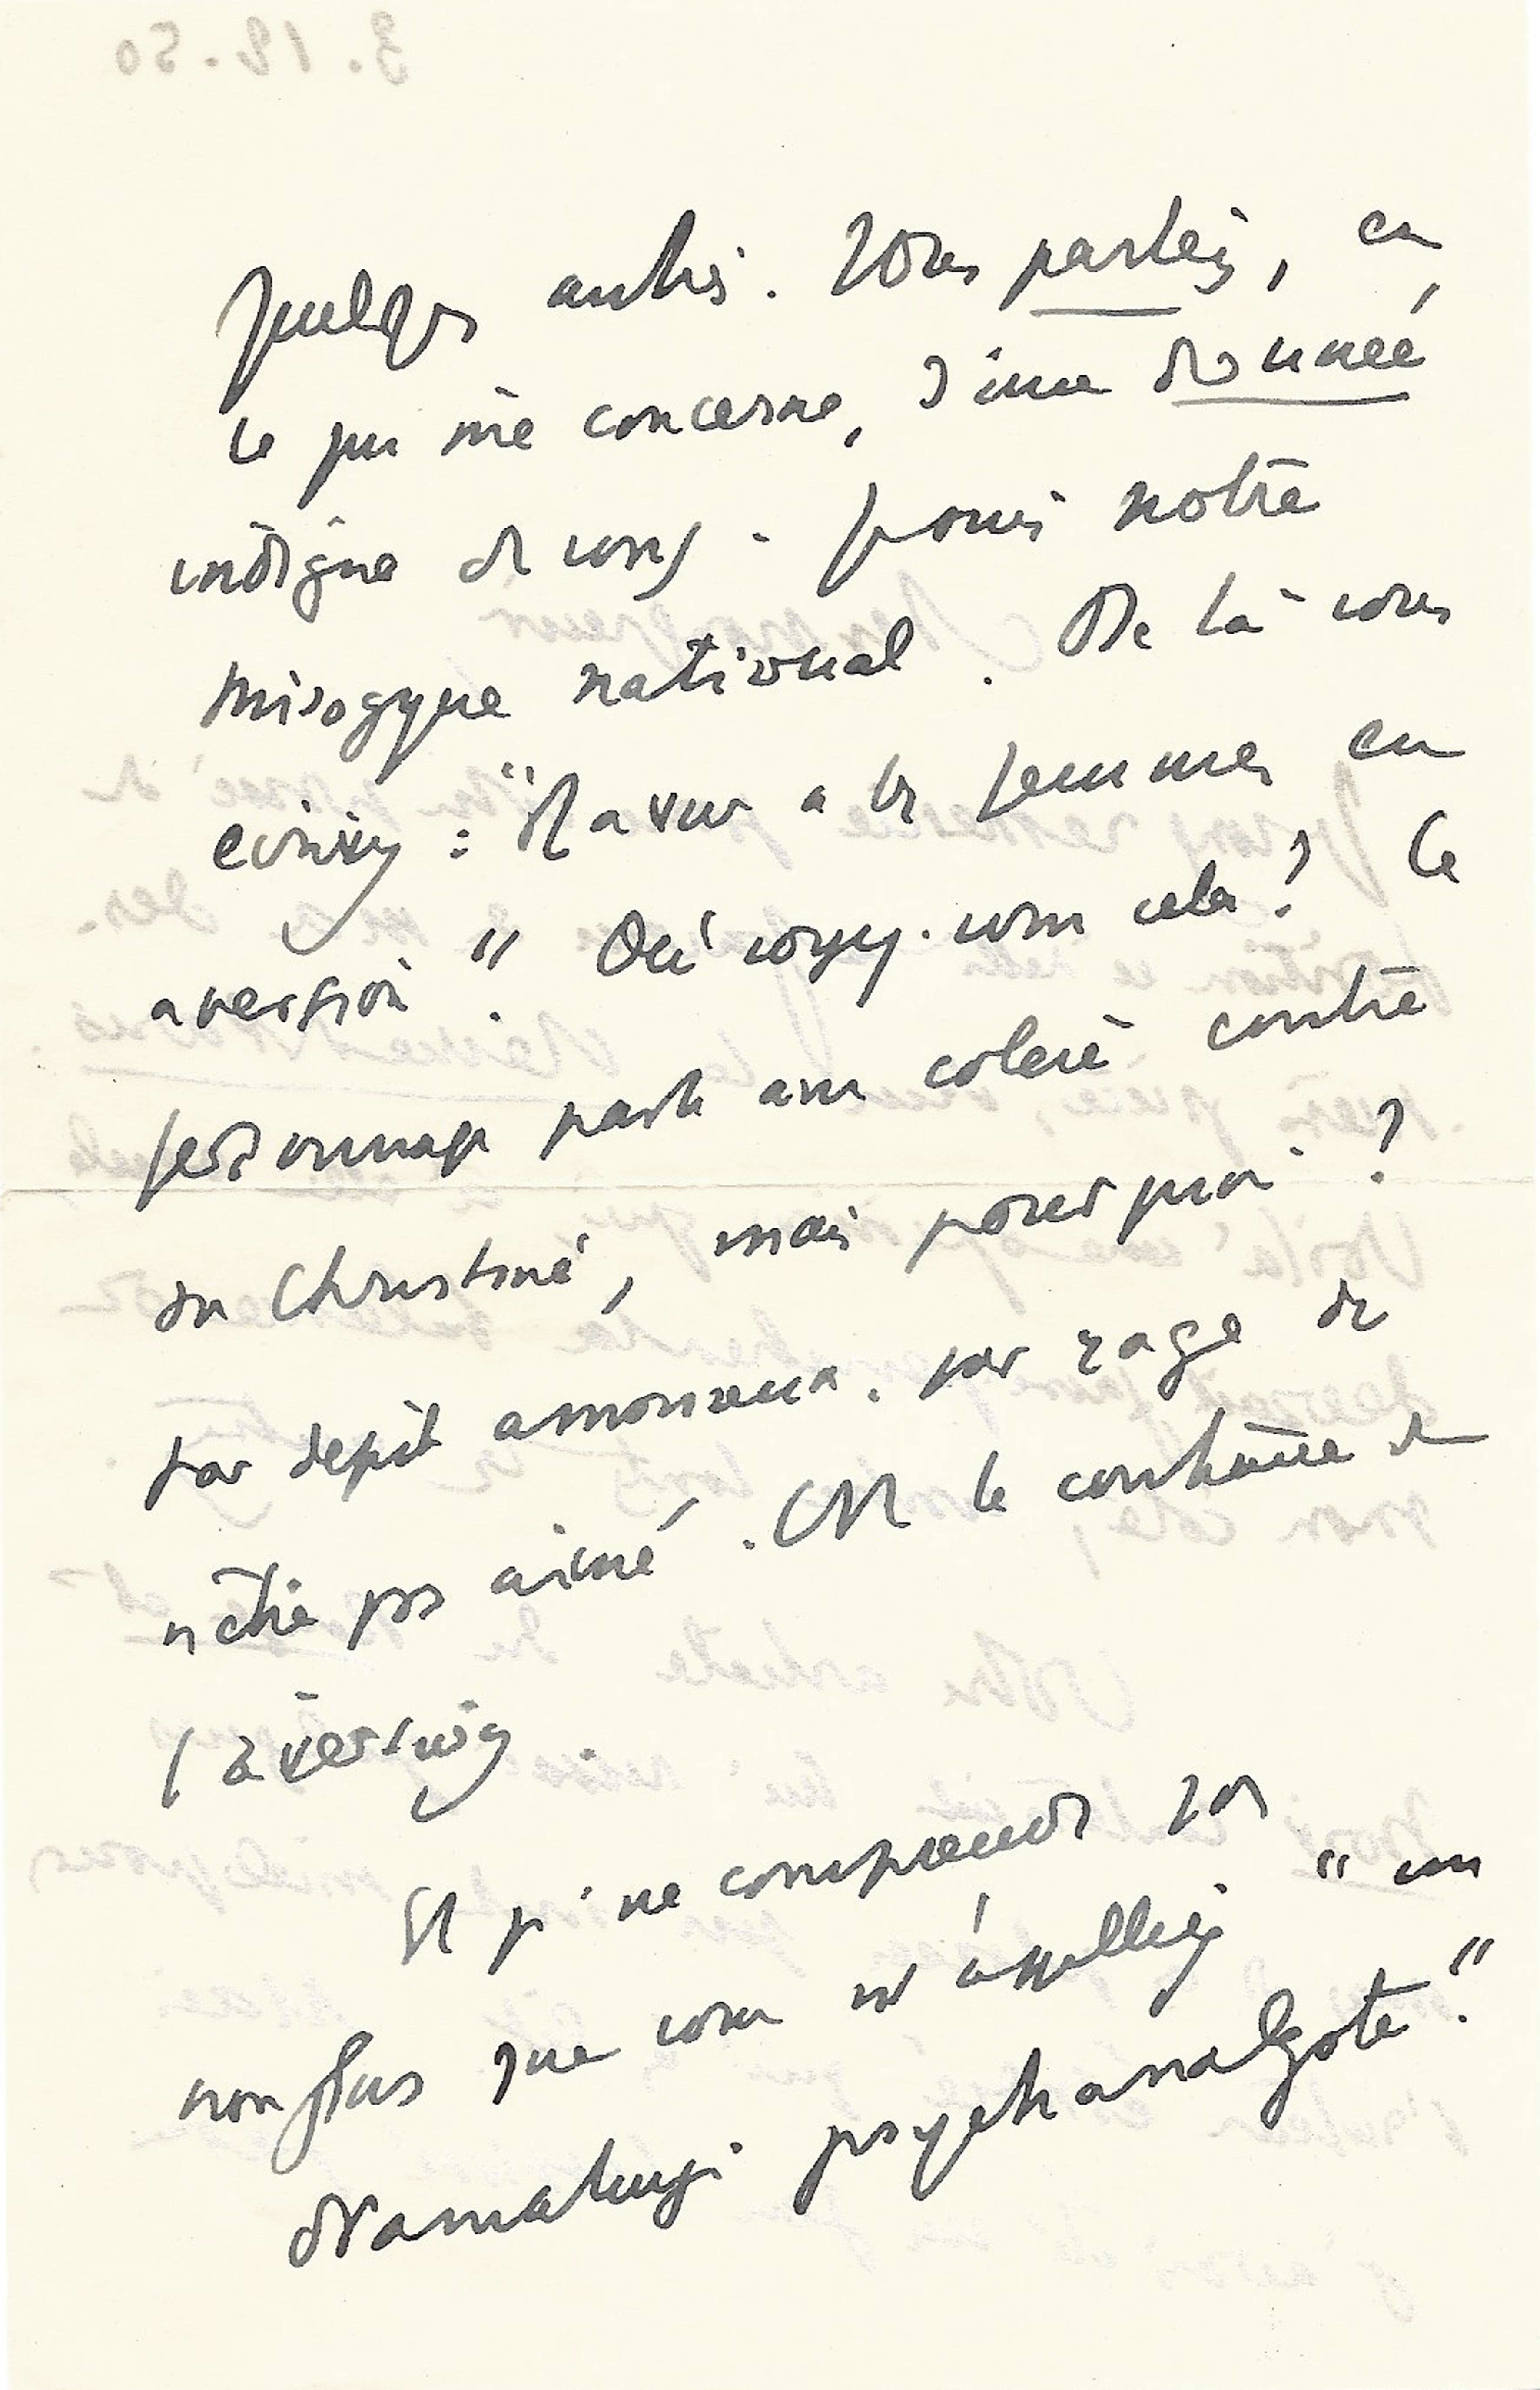 quelques autres. Vous partez, en
ce qui me concerne, d'une donnée
indigne de vous. notre
misogyne national. De là vous
écrivez : "Ravier a les femmes en
aversion". Où voyez-vous cela ? Ce
personnage parle avec colère contre
Christine, mais pourquoi ?
par dépit amoureux, par rage de
n'être pas aimé. C'est le contraire de
l'aversion.
Et je ne comprends pas
non plus que vous m'appelliez "un
dramaturge psychanalyste."